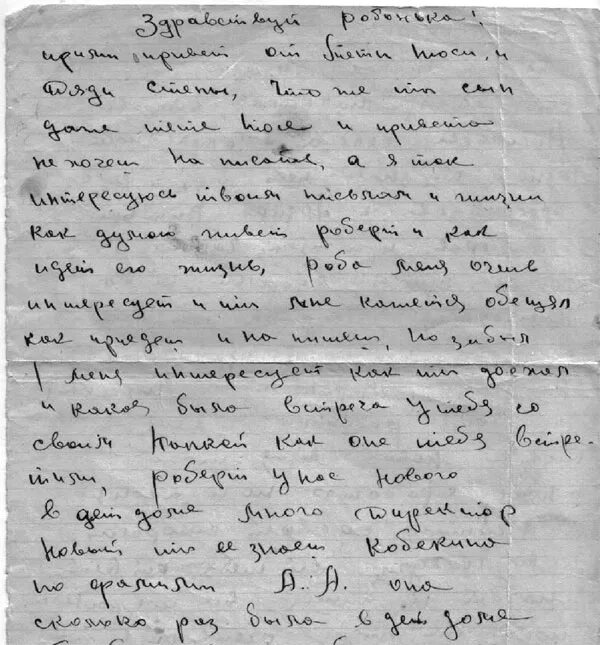 Здравствуй робонька!
прими привет от тети Тоси, и
Дяди Степы, Что же ты сын
даже тете Тосе и привета
не хочеш на писать, а я так
интересуюсь твоим письмам и жизни
как думаю живет роберт и как
идет его жизнь, роба меня очень
интересует и ты мне кажется обещял
как приедеш и на пишеш, по забыл
меня интересует как ты доехал
и какая была встреча у тебя со
своим папкей как оне тебя встре-
тили, роберт у нас нового
в дет доме много директор
новый ты ее знаеш Кобекина
по фамилии А. А. она
сколько раз была в дет доме